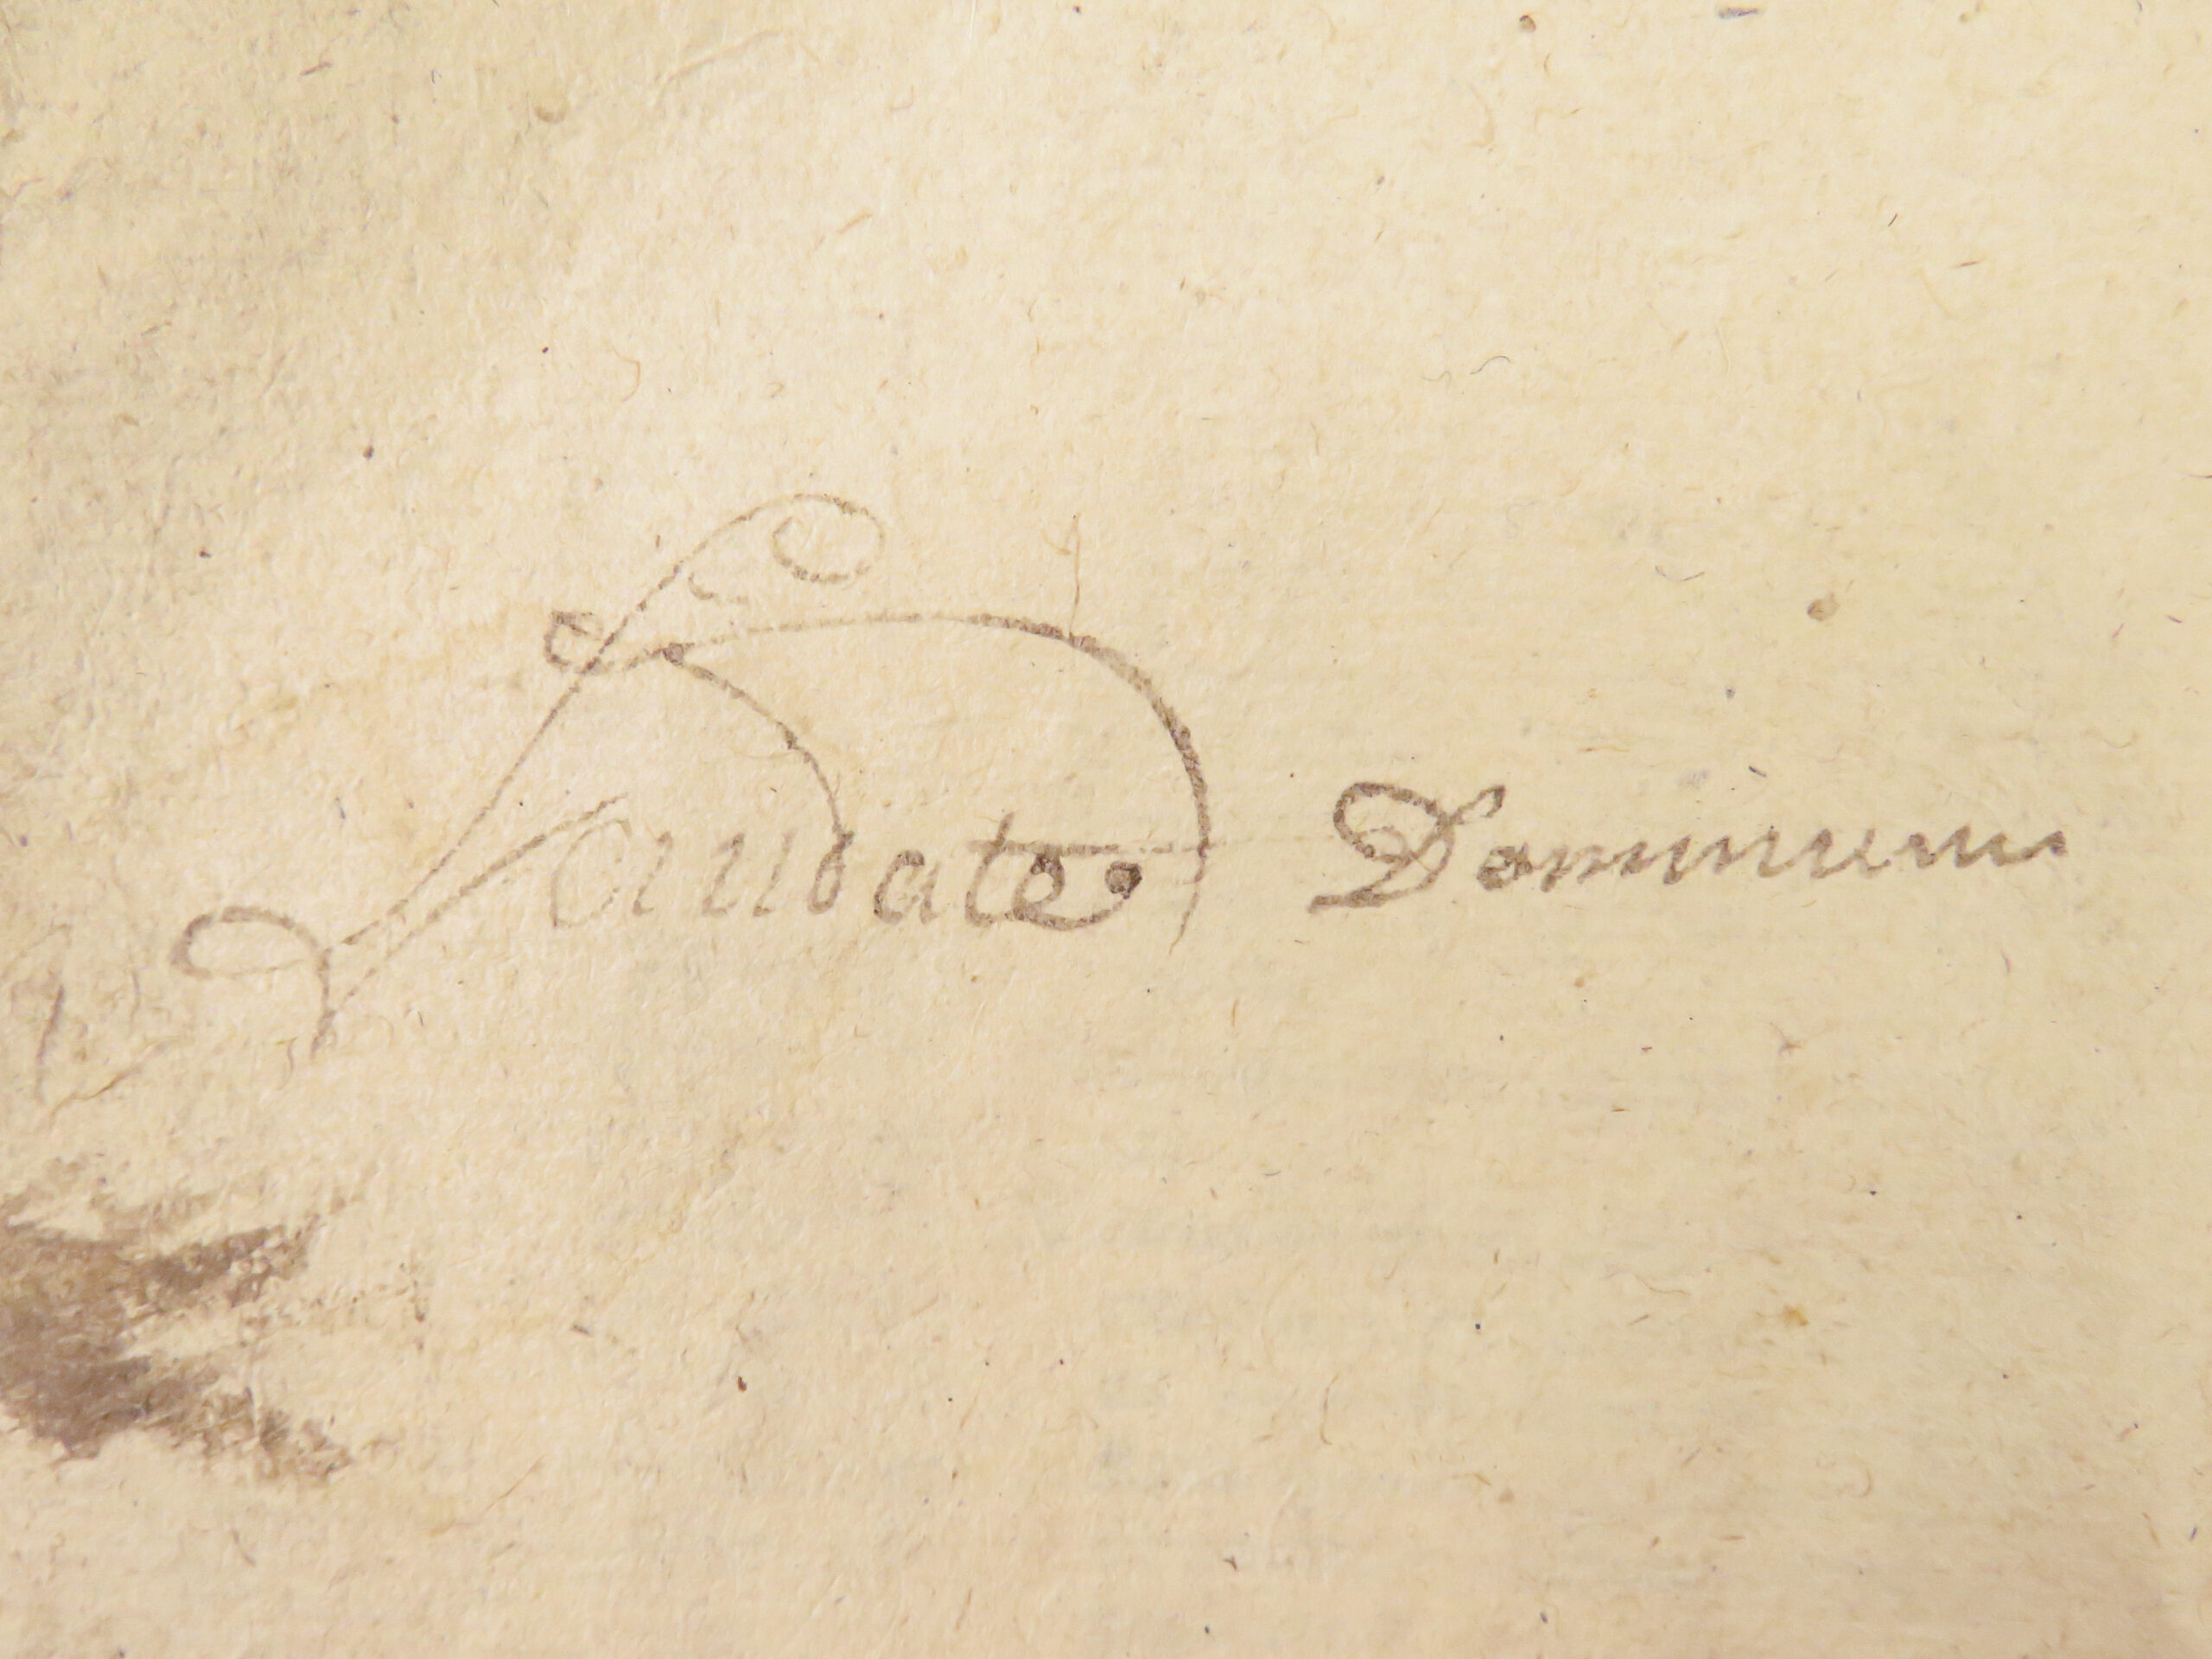 Laudate Dominum